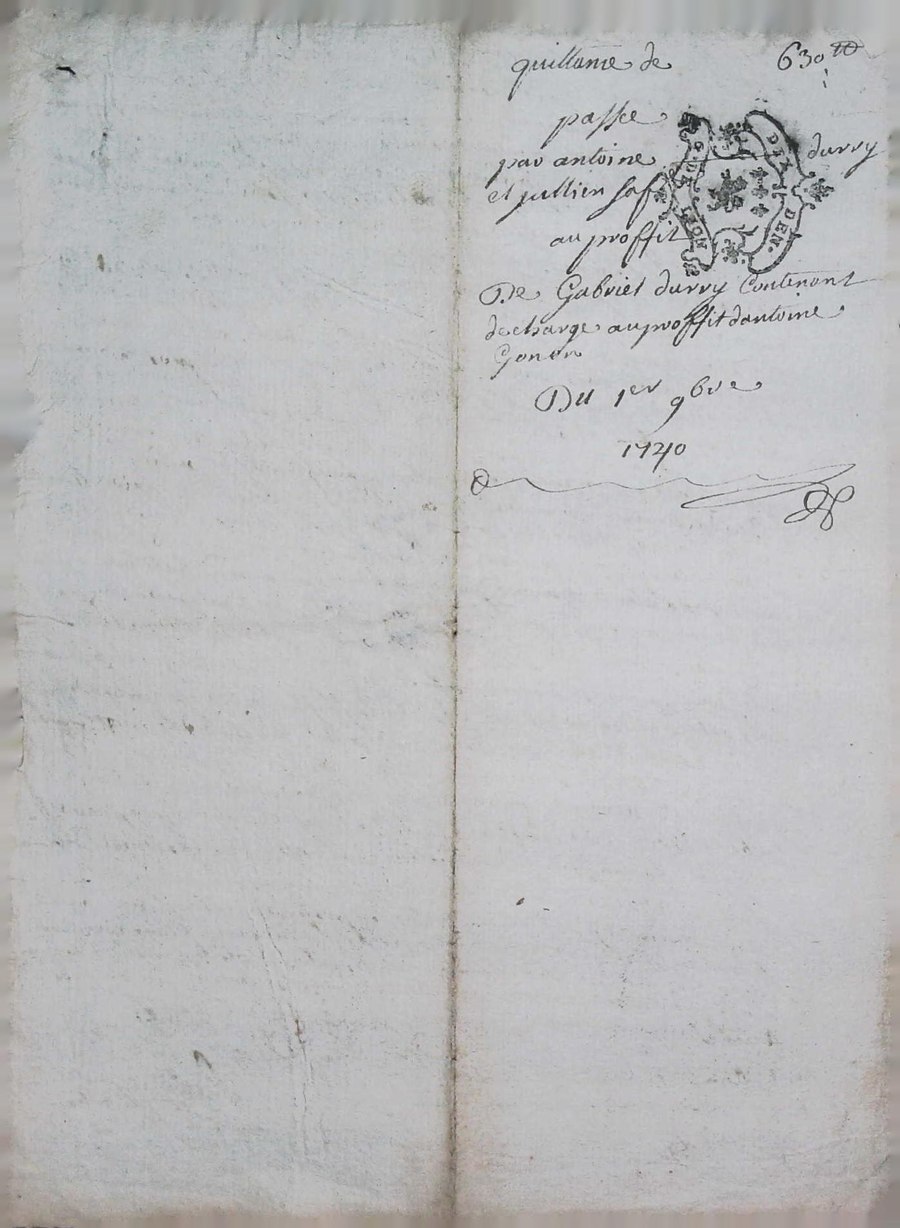 quittance de 630 tt
passée
par antoine durry
et jullien
au proffit
De Gabriel durry Contenant
decharge au proffit dantoine
Gonon
Du 1er 9bre
1740
G. DE LION
DIX DEN.